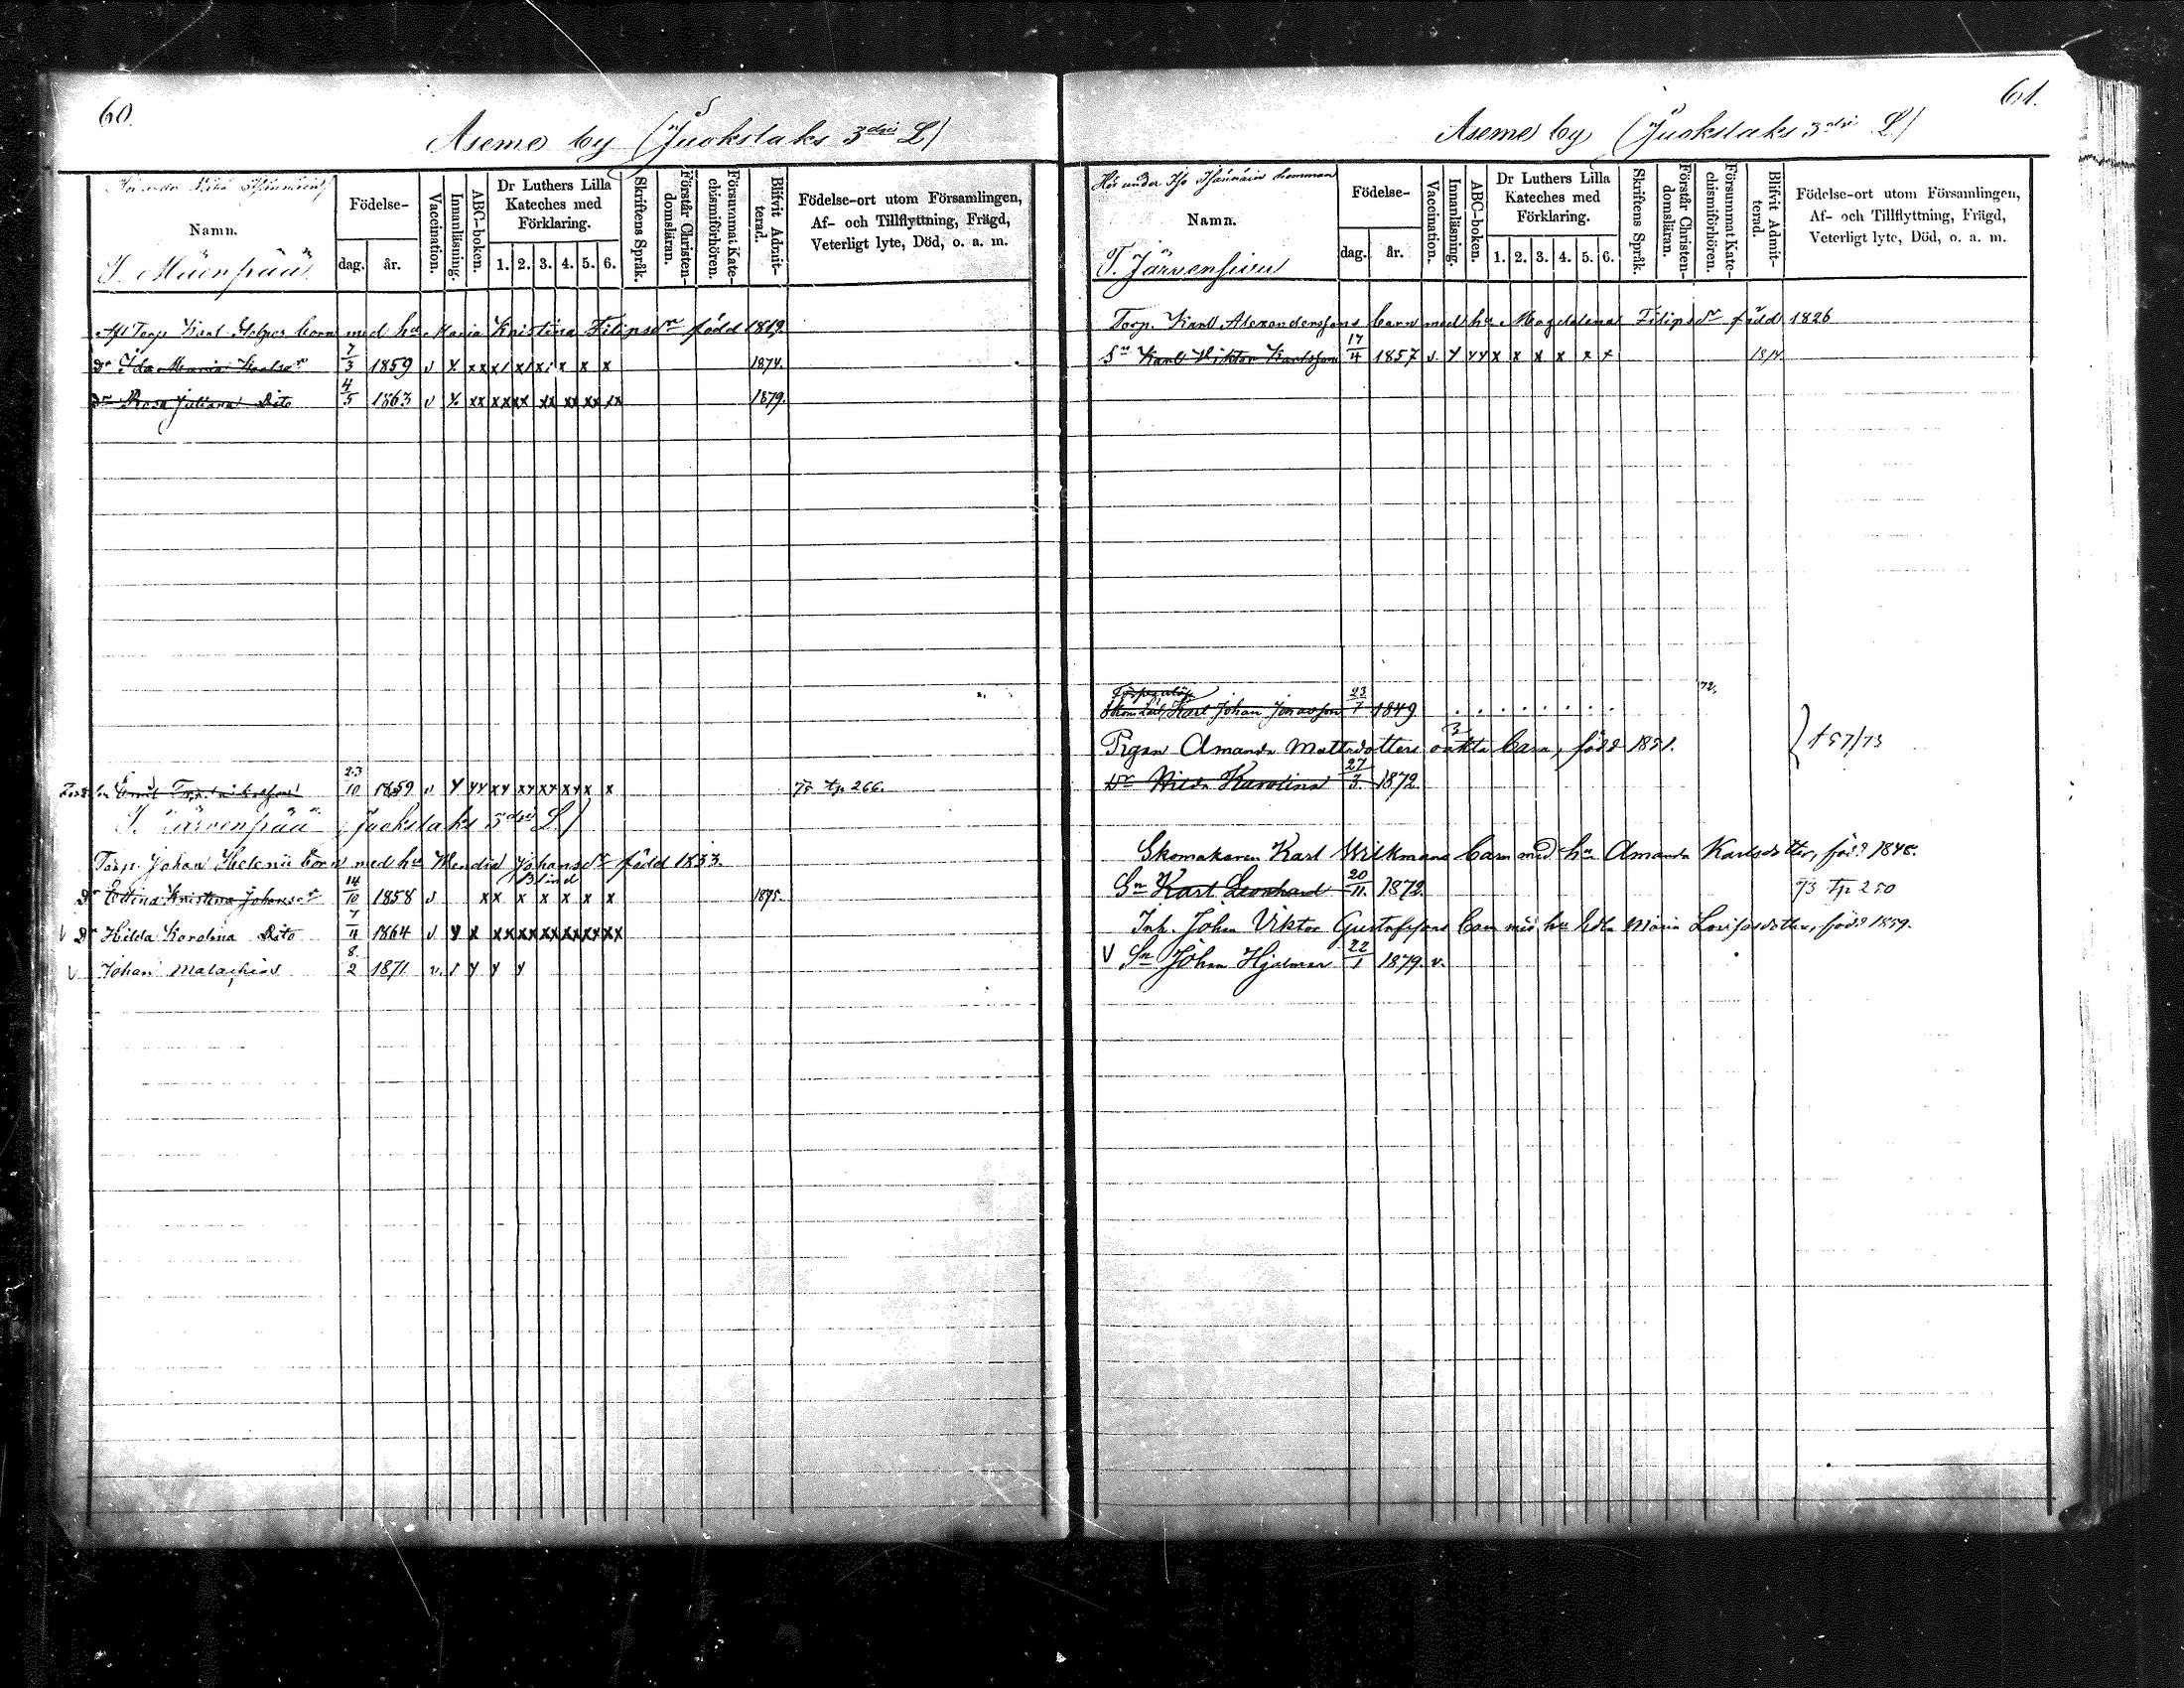 60.
Aseme by (Juokslaks 3dra L)
Namn.
Födelse-
dag.
år.
Vaccination.
Innanläsning.
ABC-boken.
Dr Luthers Lilla Kateches med Förklaring.
1. 2. 3. 4. 5. 6.
Skriftens Språk.
Förstår Christen-domsläran.
Försummat Kate-chismiförhören.
Blifvit Admit-terad.
Födelse-ort utom Församlingen,
Af- och Tillflyttning, Frägd,
Veterligt lyte, Död, o. a. m.
T. Mäenpää
Torp Karl barn med hu Maria Kristina Filipsdr född 1819
Dr Ida Maria 7/3 1859 v x xx x x x x x x 1874.
Dr Rosa Juliana Dito 4/5 1863 v x xx xx xx xx xx xx xx 1879.
Emil 23/10 1859 v 266.
T. Järvenpää (Juokslaks 3dra L)
Torp. Johan barn med hu Johansdr född 1833.
Blind
Dr Kristina Johansdr 14/10 1858 v xx x x x x x x 1875.
V Dr Hilda Karolina Dito 7/11 1864 v x x xx xx xx xx xx xx
V Johan Malachias 8/2 1871. v.
61.
Aseme by (Juokslaks 3dra L)
Hör under Iso hemman
Namn.
Födelse-
dag.
år.
Vaccination.
Innanläsning.
ABC-boken.
Dr Luthers Lilla Kateches med Förklaring.
1. 2. 3. 4. 5. 6.
Skriftens Språk.
Förstår Christen-domsläran.
Försummat Kate-chismiförhören.
Blifvit Admit-terad.
Födelse-ort utom Församlingen,
Af- och Tillflyttning, Frägd,
Veterligt lyte, Död, o. a. m.
T. Järvensivu
Torp. Karl Alexanderssons barn med hu Magdalena Filipsdr född 1826
Sn Karl Viktor Karlsson 17/4 1857 v x x x x x x
Karl Johan 23/1 1849 . . . . . . . . 72.
Pigan Amanda Mattsdotters oäkta barn, född 1851.
Dr Hilda Karolina 27/3. 1872.
Skomakaren Karl Wilkmans barn med hu Amanda Karlsdotter, född 1848.
Sn Karl Leonhard 20/11. 1872. 73 250
Inh. Johan Viktor Gustafssons barn med hu Edla Maria Lovisasdotter, född 1859.
V Sn Johan Hjalmar 22/1 1879. v.